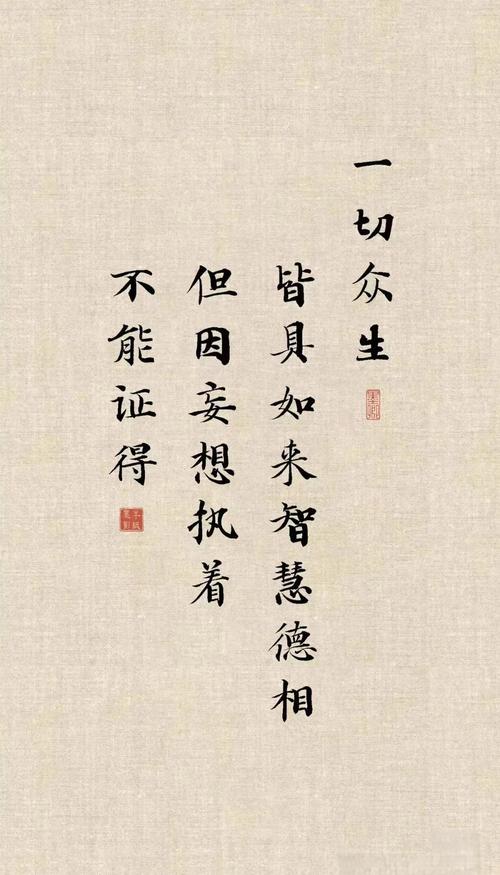 一切众生
皆具如来智慧德相
但因妄想执着
不能证得